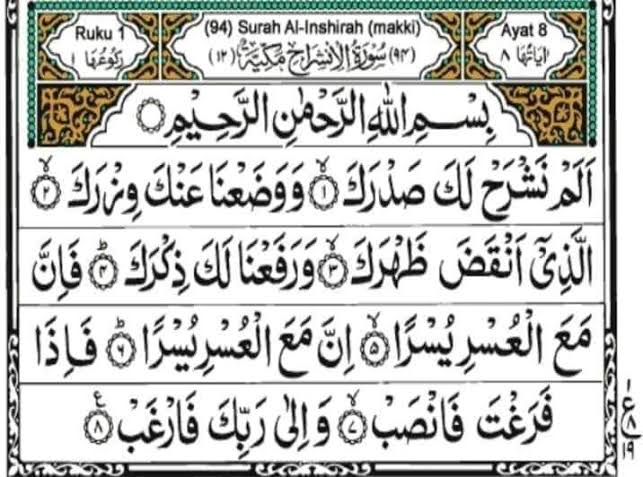 Ruku 1 (94) Surah Al-Inshirah (makki) Ayat 8
رُكُوْعُهَا ١ (٩٤) سُوْرَةُ الْاِنْشِرَاحِ مَكِّيَّةٌ (١٢) اٰيَاتُهَا ٨
بِسْمِ اللهِ الرَّحْمٰنِ الرَّحِيْمِ
اَلَمْ نَشْرَحْ لَكَ صَدْرَكَ ۙ﴿١﴾ وَوَضَعْنَا عَنْكَ وِزْرَكَ ۙ﴿٢﴾
الَّذِيْٓ اَنْقَضَ ظَهْرَكَ ۙ﴿٣﴾ وَرَفَعْنَا لَكَ ذِكْرَكَ ؕ﴿٤﴾ فَاِنَّ
مَعَ الْعُسْرِ يُسْرًا ۙ﴿٥﴾ اِنَّ مَعَ الْعُسْرِ يُسْرًا ؕ﴿٦﴾ فَاِذَا
فَرَغْتَ فَانْصَبْ ۙ﴿٧﴾ وَاِلٰى رَبِّكَ فَارْغَبْ ﴿٨﴾
١
ع
٨
١٩